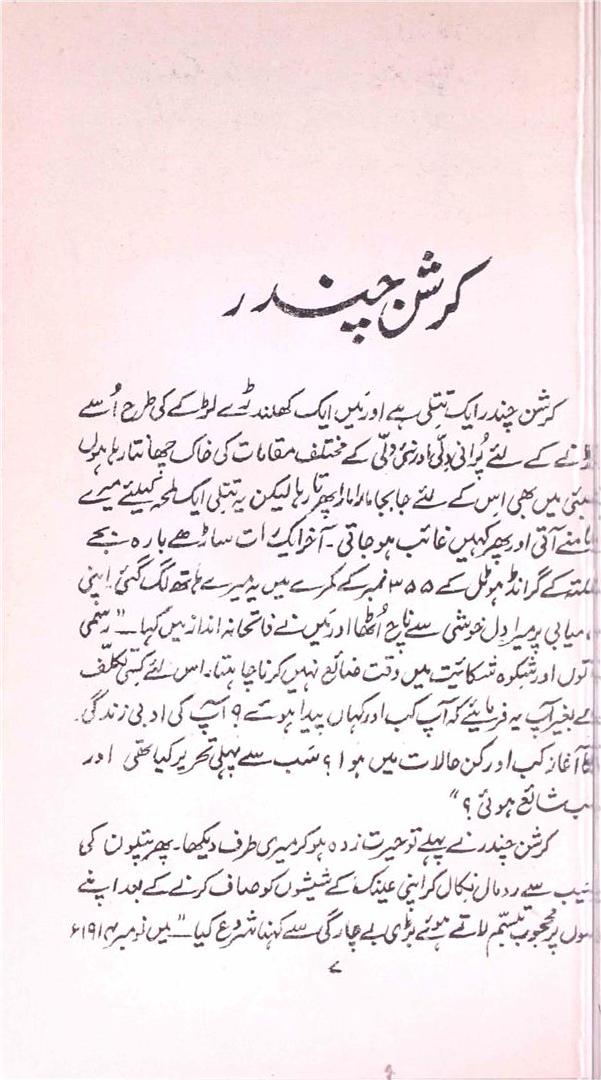 کرشن چندر
کرشن چندر ایک تتلی ہے اور میں ایک کھلنڈرے لڑکے کی طرح اُسے
کے لئے پُرانی دلّی اور نئی دلّی کے مختلف مقامات کی خاک چھانتا رہا ہوں
میں بھی اس کے لئے جابجا مارا مارا پھرتا رہا لیکن یہ تتلی ایک لمحہ کیلئے میرے
آتی اور پھر کہیں غائب ہو جاتی۔ آخر ایک رات ساڑھے بارہ بجے
کے گرانڈ ہوٹل کے ۳۵۵ نمبر کے کمرے میں یہ میرے ہاتھ لگ گئی۔ اپنی
میرا دل خوشی سے ناچ اُٹھا اور میں نے فاتحانہ انداز میں کہا — "رسمی
اور شکوہ شکائیت میں وقت ضائع نہیں کرنا چاہتا۔ اس لئے کسی تکلّف
بغیر آپ یہ فرمایئے کہ آپ کب اور کہاں پیدا ہوئے؟ آپ کی ادبی زندگی
کا آغاز کب اور کن حالات میں ہوا؟ سب سے پہلی تحریر کیا تھی اور
شائع ہوئی؟"
کرشن چندر نے پہلے تو حیرت زدہ ہو کر میری طرف دیکھا۔ پھر پتلون کی
سے رومال نکال کر اپنی عینک کے شیشوں کو صاف کرنے کے بعد اپنے
پر محجوب تبسّم لاتے ہوئے بڑی بے چارگی سے کہنا شروع کیا — "میں نومبر ۱۹۱۴ء
۷